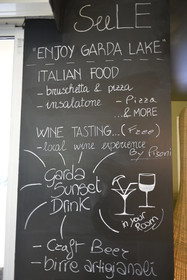 SuLE
"ENJOY GARDA LAKE"
ITALIAN FOOD
- bruschetta & pizza
- insalatone - Pizza
...& MORE
WINE TASTING...(Free)
- local wine experience
By Pisoni
Garda
Sunset
Drink
in your
Room
- Craft Beer
- birre artigianali